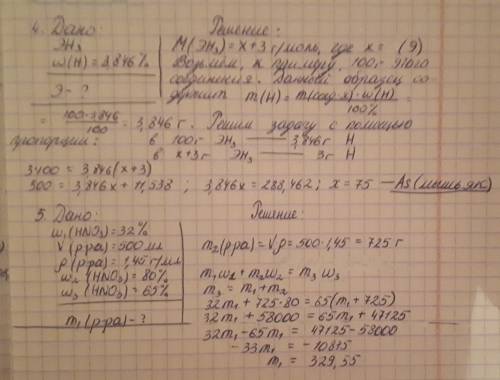 4. Дано:
ЭН₃
ω(Н) = 3,846%
Э - ?
Решение:
М(ЭН₃) = х+3 г/моль, где х = (Э)
Возьмём, к примеру, 100г этого
соединения. Данный образец со
держит m(H) = m(соед-я)·ω(H) / 100% =
= 100·3,846 / 100 = 3,846 г. Решим задачу с помощью
пропорции: в 100г ЭН₃ — 3,846г Н
в х+3г ЭН₃ — 3г Н
3·100 = 3,846(х+3)
300 = 3,846х + 11,538 ; 3,846х = 288,462 ; х = 75 — As (мышьяк)
5. Дано:
ω₁(HNO₃) = 32%
V(р-ра) = 500 мл
ρ(р-ра) = 1,45 г/мл
ω₂(HNO₃) = 80%
ω₃(HNO₃) = 65%
m₁(р-ра) - ?
Решение:
m₂(р-ра) = V·ρ = 500·1,45 = 725 г
m₁ω₁ + m₂ω₂ = m₃ω₃
m₃ = m₁ + m₂
32m₁ + 725·80 = 65(m₁ + 725)
32m₁ + 58000 = 65m₁ + 47125
32m₁ - 65m₁ = 47125 - 58000
-33m₁ = -10875
m₁ = 329,55